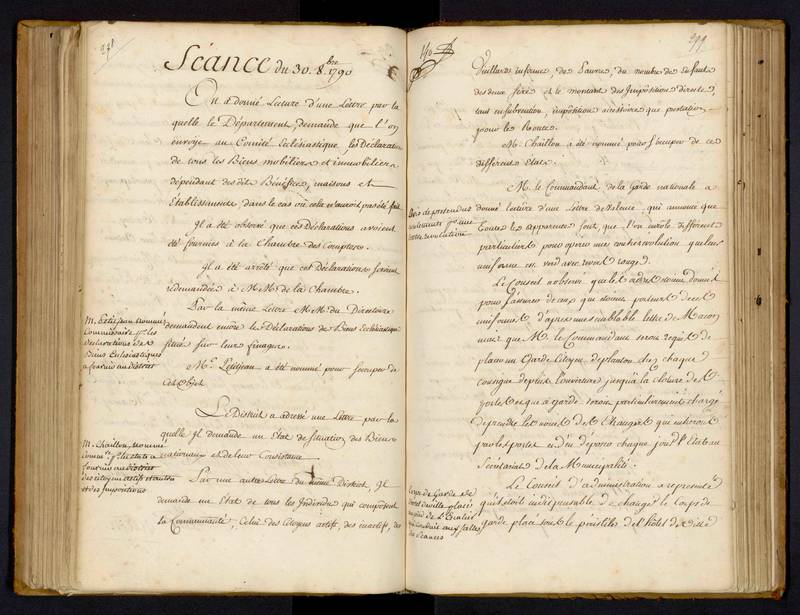 298
Séance du 30. 8.bre 1790
On a donné Lecture d'une Lettre par la
quelle le Département, demande que l'on
envoye au Comité Ecclésiastique, les Déclarations
de tous les Biens mobiliers et immobiliers
dépendant des dits Bénéfices, maisons et
Etablissements, dans le cas où cela n'auroit pas été fait.
Il a été observé que ces Déclarations avoient
été fournies à la Chambre des Comptes.
Il a été arrêté que ces Déclarations seroient
redemandées à M.M. de la Chambre.
Par la même Lettre M.M. du Directoire
demandent encore les Déclarations de Biens Ecclésiastiques
situés sur leur finage.
M. Petitjean nommé
Commissaire pr. les
déclarations de
Biens Ecclésiastiques
à fournir au district
Mr. Petitjean a été nommé pour s'occuper de
cet objet.
Le District a adressé une Lettre par la
quelle Il demande un Etat de situation des Biens
nationaux et de leur Consistance.
M. Chaillon, nommé
Comre. pr. les etats à
fournir au district
des citoyens actifs et autres
et des impositions
Par une autre Lettre du même District, Il
demande un Etat de tous les Individus qui composent
la Communauté, Celui des Citoyens actifs, des inactifs, des
299
Vieillards infirmes, de Pauvres, du nombre de Enfants
des deux sexes et le montant des Impositions directes,
tant en subvention, imposition accessoire que prestation
pour les Routes.
M. Chaillon a été nommé pour s'occuper de ces
différents Etats.
M. le Commandant de la Garde nationale a
donné lecture d'une Lettre de Valence, qui annonce que
toutes les apparences sont, que l'on enrôle différents
particuliers pour opérer une contrerévolution que leur
uniforme est verd avec revers rouges.
Avis de prétendus
enrolements pr. une
contre revolution
Le Conseil a observé que les adresses
pour s'assurer de ceux qui portent cet
uniforme d'après une semblable lettre de Macon
que M. le Commandant seroit requis de
placer un Garde Citoyen de planton chez chaque
consigne depuis l'ouverture jusqu'à la cloture des
portes et que ce garde seroit particulièrement chargé
de prendre les noms des Etrangers qui entreront
par les portes et d'en déposer chaque jour l'Etat au
Sécrétariat de la Municipalité.
Corps de Garde de
l'hotel de ville placé
au pied de L'Escalier
qui conduit aux salles
des séances
Le Conseil d'administration a représenté
qu'il étoit indispensable de changer le Corps de
garde placé sous le péristile de l'hôtel de ville